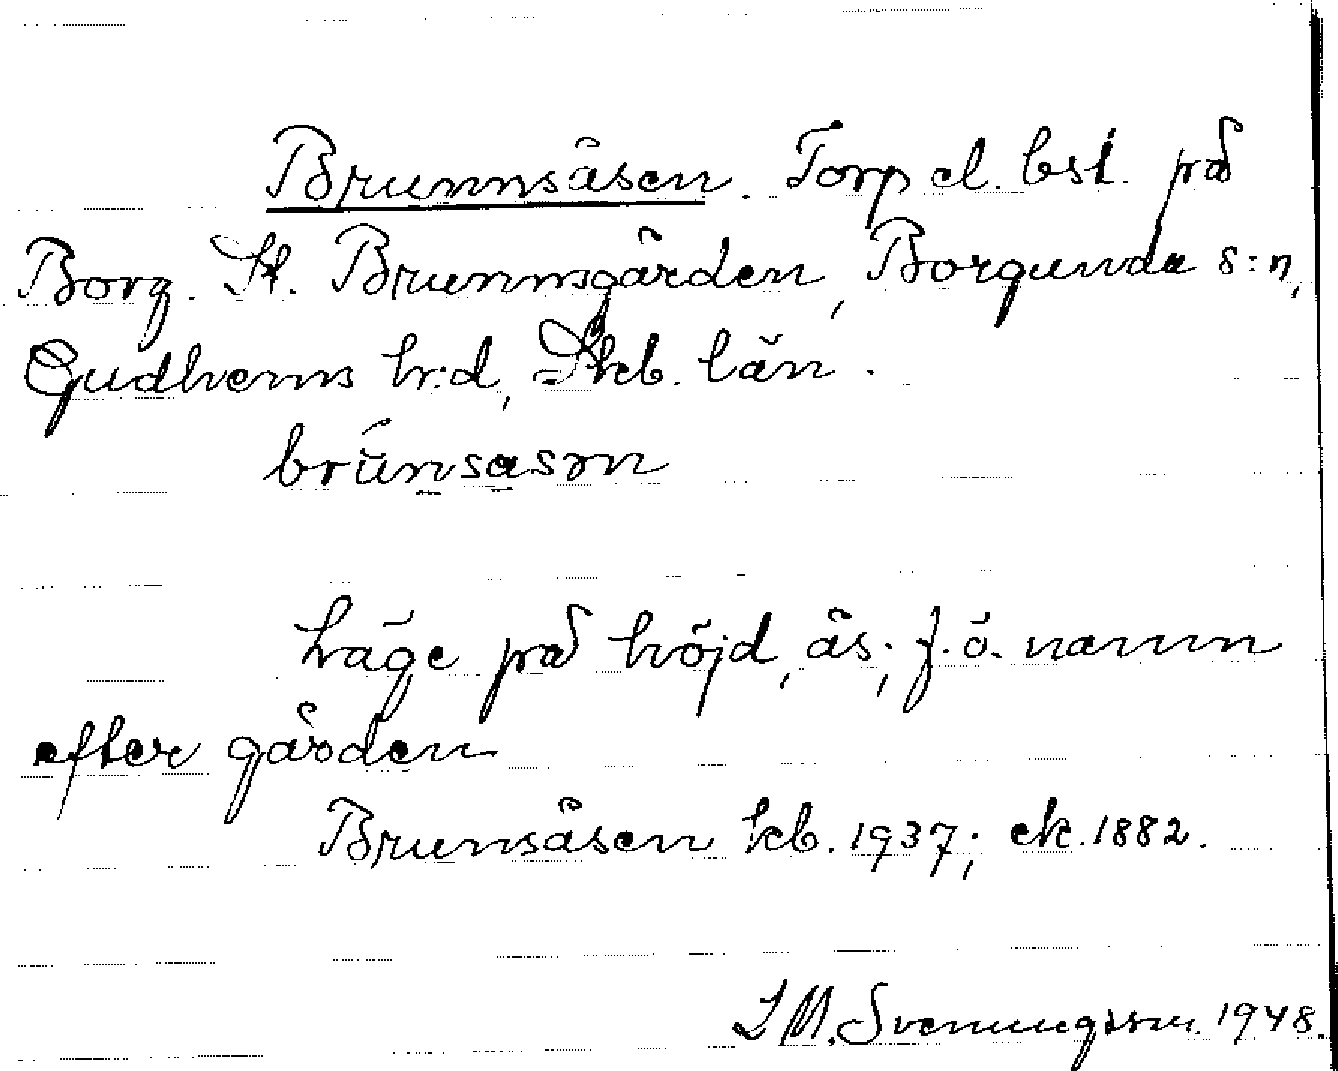 Brunnsåsen. Torp el. bst. på
Borg. St. Brunnsgården, Borgunda s:n,
Gudhems hr:d, Skb. län.
brünsasm
Läge på höjd, ås; f.ö. namn
efter gården
Brunsåsen kb. 1937; ek. 1882.
I M. Svenungsson 1948.